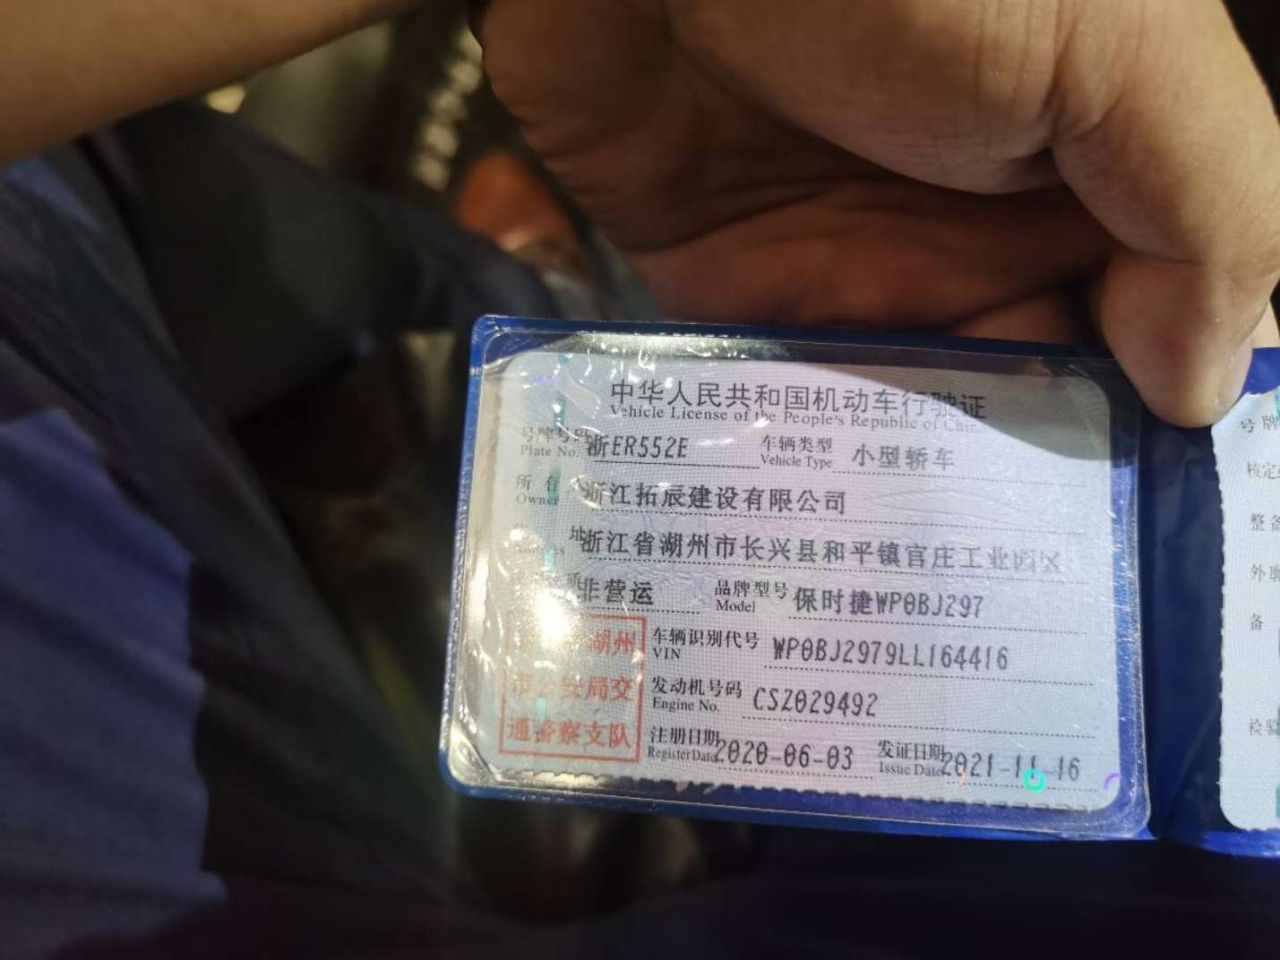 中华人民共和国机动车行驶证
Vehicle License of the People's Republic of China
号牌号码 浙ER552E 车辆类型 小型轿车
Plate No. Vehicle Type
所 有 人 浙江拓辰建设有限公司
Owner
址 浙江省湖州市长兴县和平镇官庄工业园区
非营运 品牌型号 保时捷WP0BJ297
Model
车辆识别代号 WP0BJ2979LL164416
VIN
发动机号码 CSZ029492
Engine No.
注册日期 2020-06-03 发证日期 2021-11-16
Register Date Issue Date
湖州
市公安局交
通警察支队
号牌
核定
整备
外廓
备
检验